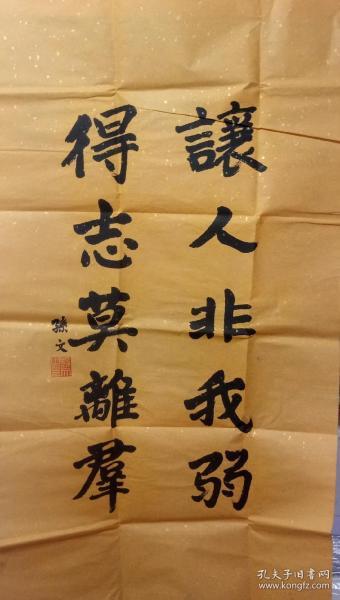 讓人非我弱
得志莫離羣
孫文
孔夫子旧书网
www.kongfz.com